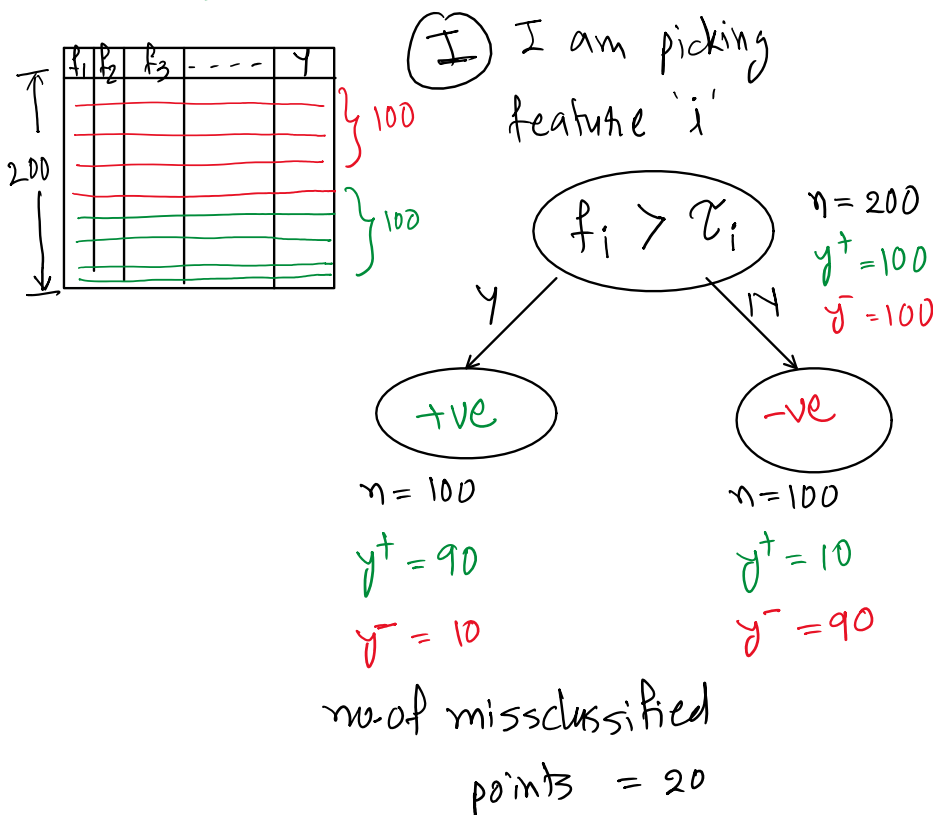 f1 f2 f3 ----- Y
200
100
100
I I am picking
feature 'i'
fi > τi
n = 200
y+ = 100
y- = 100
Y
N
+ve
-ve
n = 100
y+ = 90
y- = 10
n = 100
y+ = 10
y- = 90
no. of missclassified
points = 20